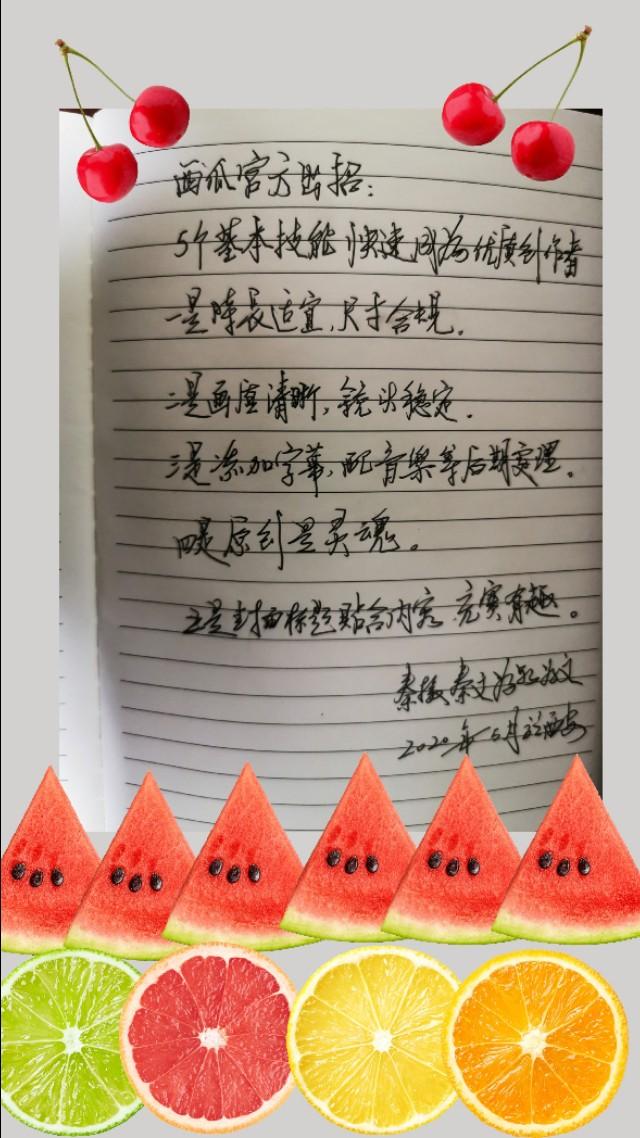 西瓜官方出招:
5个基本技能 快速成为优质创作者
一是时长适宜,尺寸合规。
二是画质清晰,镜头稳定。
三是添加字幕,配音乐等后期处理。
四是原创是灵魂。
五是封面标题贴合内容 充实有趣。
秦摄秦文
2020年6月 西安